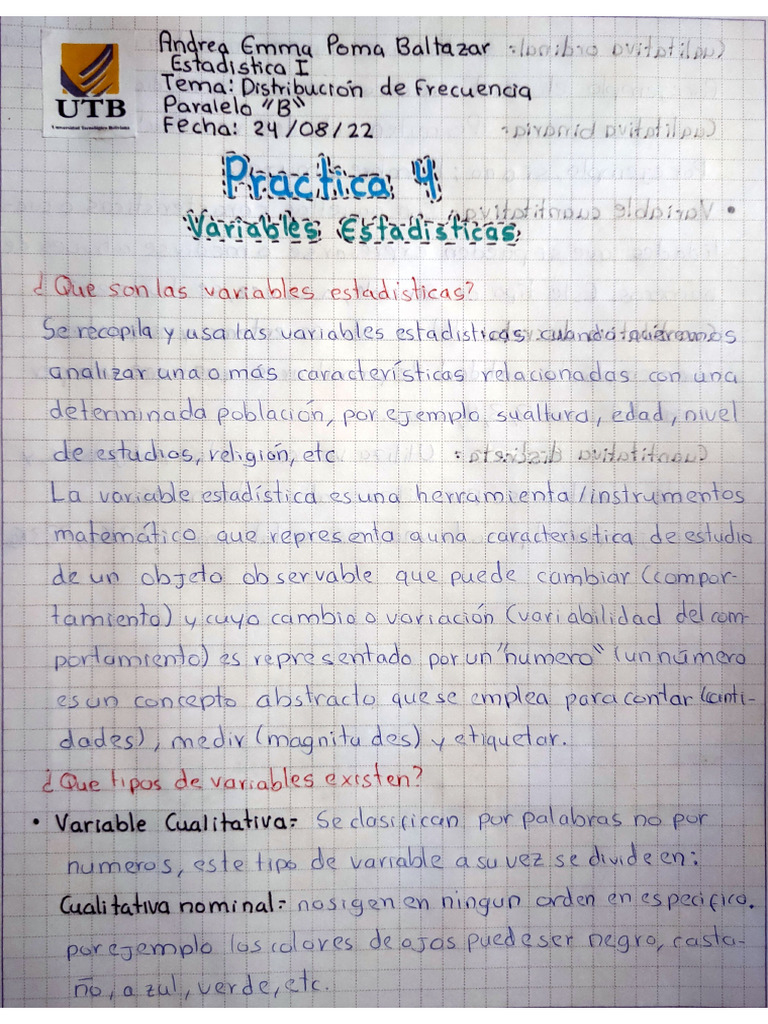 Andrea Emma Poma Baltazar
Estadistica I
Tema: Distribución de Frecuencia
Paralelo "B"
Fecha: 24/08/22
UTB
Universidad Tecnológica Boliviana
Practica 4
Variables Estadisticas
¿Que son las variables estadisticas?
Se recopila y usa las variables estadisticas cuando queremos
analizar una o más características relacionadas con una
determinada población, por ejemplo su altura, edad, nivel
de estudios, religión, etc
La variable estadística es una herramienta/instrumentos
matemático que representa a una caracteristica de estudio
de un objeto observable que puede cambiar (compor-
tamiento) y cuyo cambio o variación (variabilidad del com-
portamiento) es representado por un "numero" (un número
es un concepto abstracto que se emplea para contar (canti-
dades), medir (magnitudes) y etiquetar.
¿Que tipos de variables existen?
• Variable Cualitativa:- Se clasifican por palabras no por
numeros, este tipo de variable a su vez se divide en:
Cualitativa nominal:- no sigen en ningun orden en especifico.
por ejemplo los colores de ojos puede ser negro, casta-
ño, azul, verde, etc.